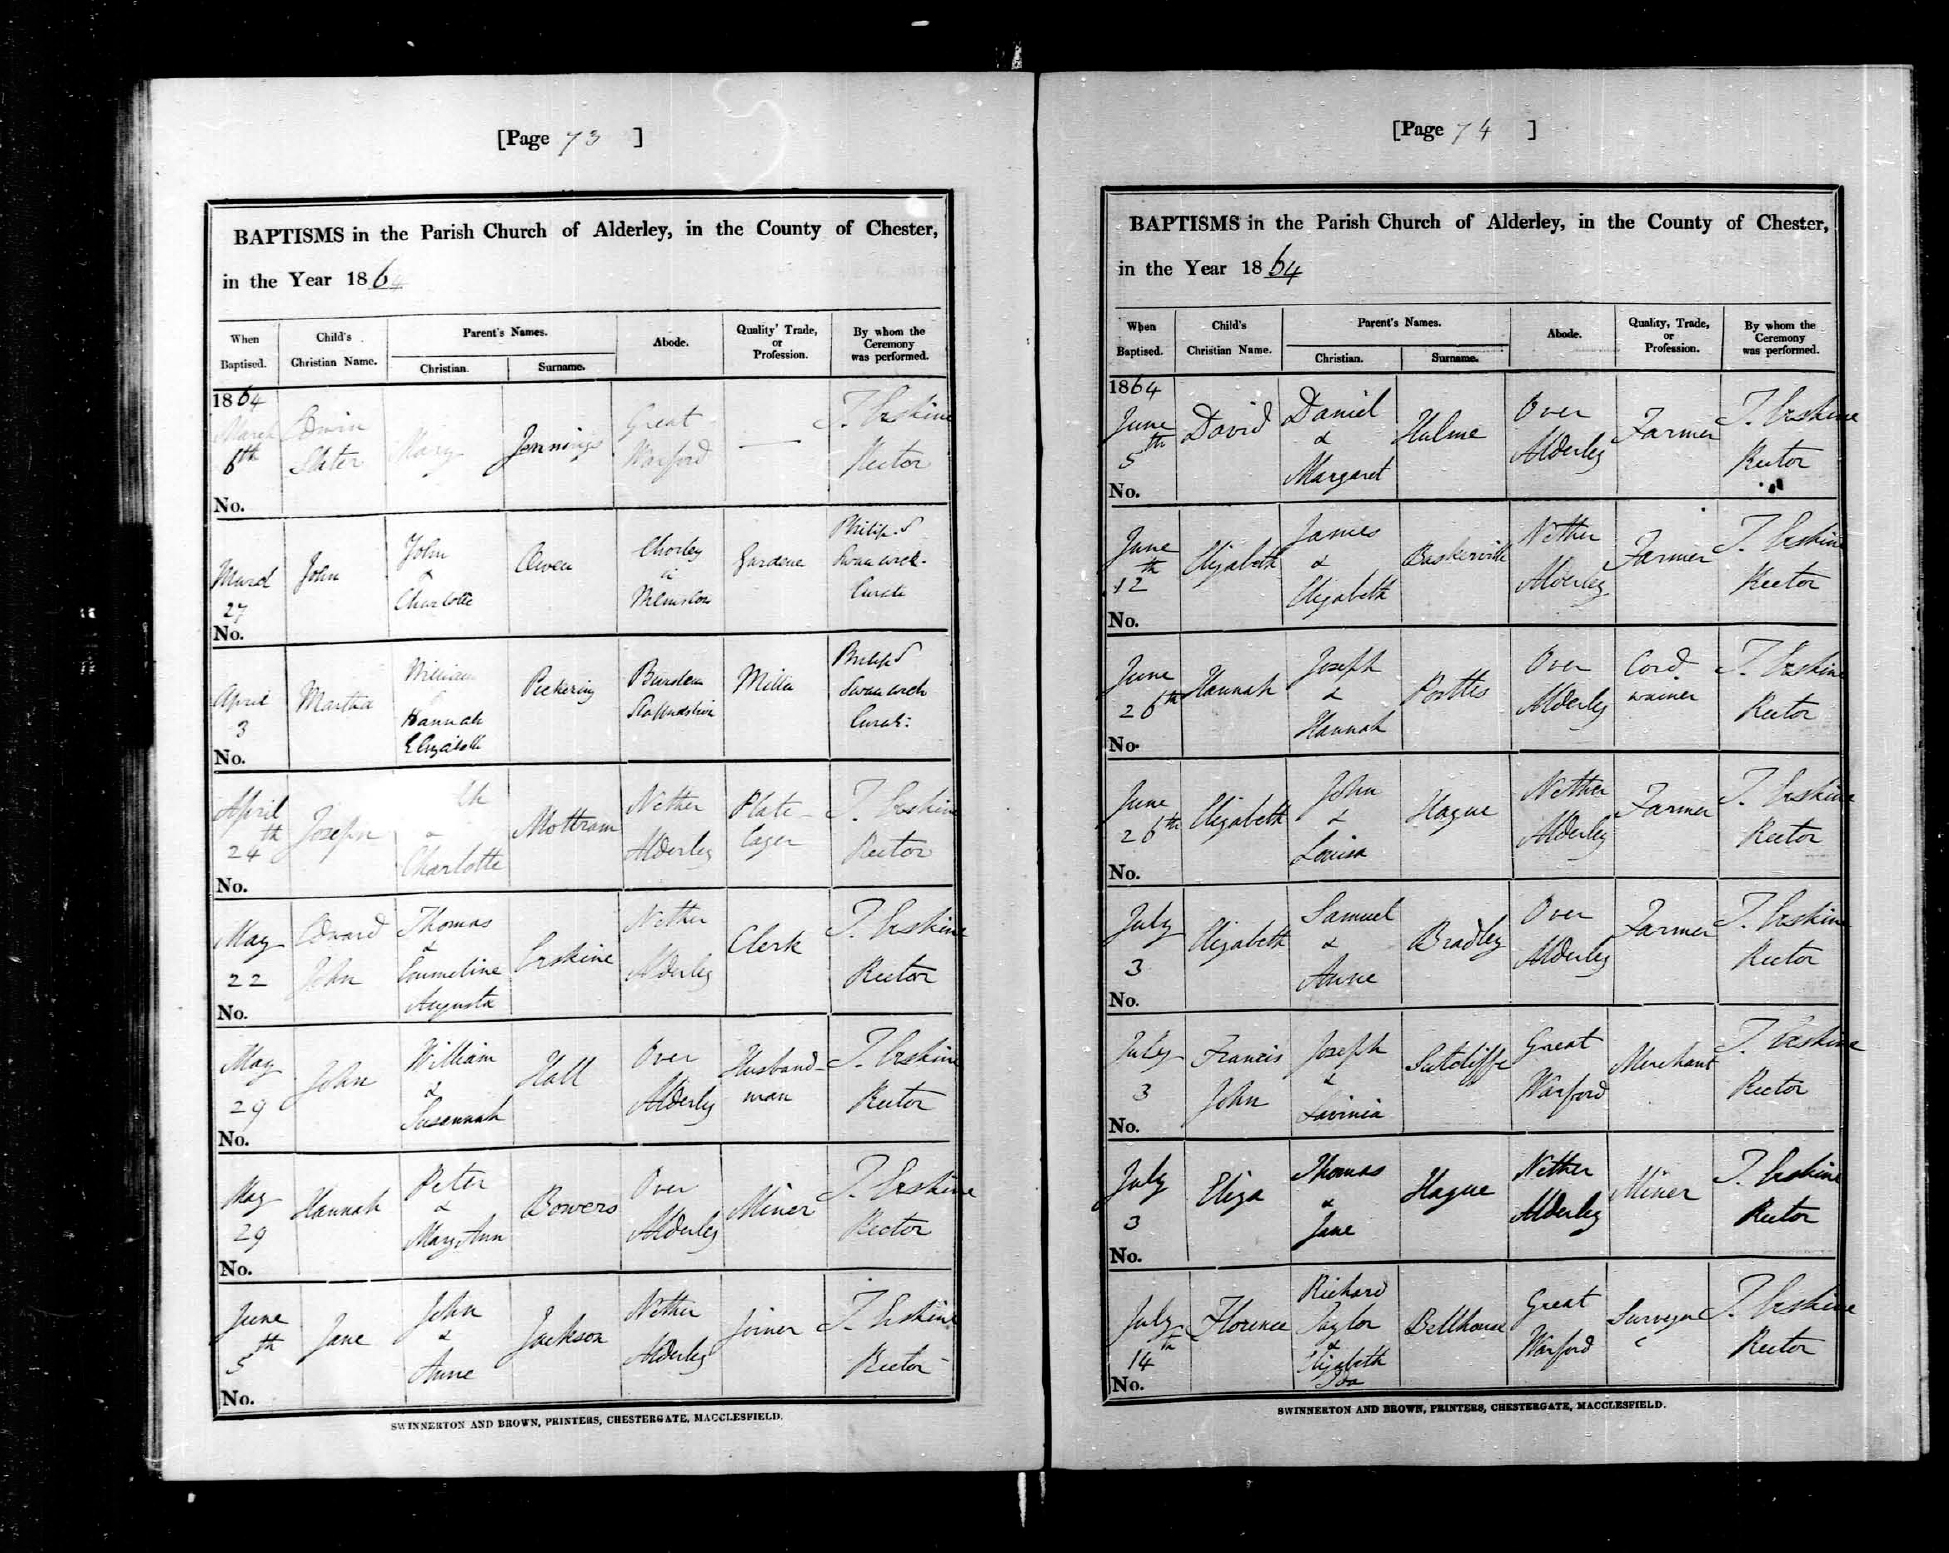 [Page 73 ]
BAPTISMS in the Parish Church of Alderley, in the County of Chester,
in the Year 1864
When Baptised. Child's Christian Name. Parent's Names. Christian. Surname. Abode. Quality' Trade, or Profession. By whom the Ceremony was performed.
1864
March 6th Edwin Slater Mary Jennings Great Warford — T. Erskine Rector
No.
March 27 John John & Charlotte Owen Chorley in Wilmslow Gardener Philip S Swanwick Curate
No.
April 3 Martha William & Hannah Elizabeth Pickering Burslem Staffordshire Miller Philip S Swanwick Curate
No.
April 24th Joseph & Charlotte Mottram Nether Alderley Plate-layer T. Erskine Rector
No.
May 22 Edward John Thomas & Emmeline Augusta Erskine Nether Alderley Clerk T. Erskine Rector
No.
May 29 John William & Susannah Hall Over Alderley Husband-man T. Erskine Rector
No.
May 29 Hannah Peter & Mary Ann Bowers Over Alderley Miner T. Erskine Rector
No.
June 5th Jane John & Anne Jackson Nether Alderley Joiner T. Erskine Rector
No.
SWINNERTON AND BROWN, PRINTERS, CHESTERGATE, MACCLESFIELD.
[Page 74 ]
BAPTISMS in the Parish Church of Alderley, in the County of Chester,
in the Year 1864
When Baptised. Child's Christian Name. Parent's Names. Christian. Surname. Abode. Quality, Trade, or Profession. By whom the Ceremony was performed.
1864
June 5th David Daniel & Margaret Hulme Over Alderley Farmer T. Erskine Rector
No.
June 12th Elizabeth James & Elizabeth Baskerville Nether Alderley Farmer T. Erskine Rector
No.
June 26th Hannah Joseph & Hannah Potts Over Alderley Cord wainer T. Erskine Rector
No.
June 26th Elizabeth John & Louisa Hague Nether Alderley Farmer T. Erskine Rector
No.
July 3 Elizabeth Samuel & Anne Bradley Over Alderley Farmer T. Erskine Rector
No.
July 3 Francis John Joseph & Lavinia Sutcliffe Great Warford Merchant T. Erskine Rector
No.
July 3 Eliza Thomas & Jane Hague Nether Alderley Miner T. Erskine Rector
No.
July 14th Florence Richard Taylor & Elizabeth Ida Bellhouse Great Warford Surveyor T. Erskine Rector
No.
SWINNERTON AND BROWN, PRINTERS, CHESTERGATE, MACCLESFIELD.